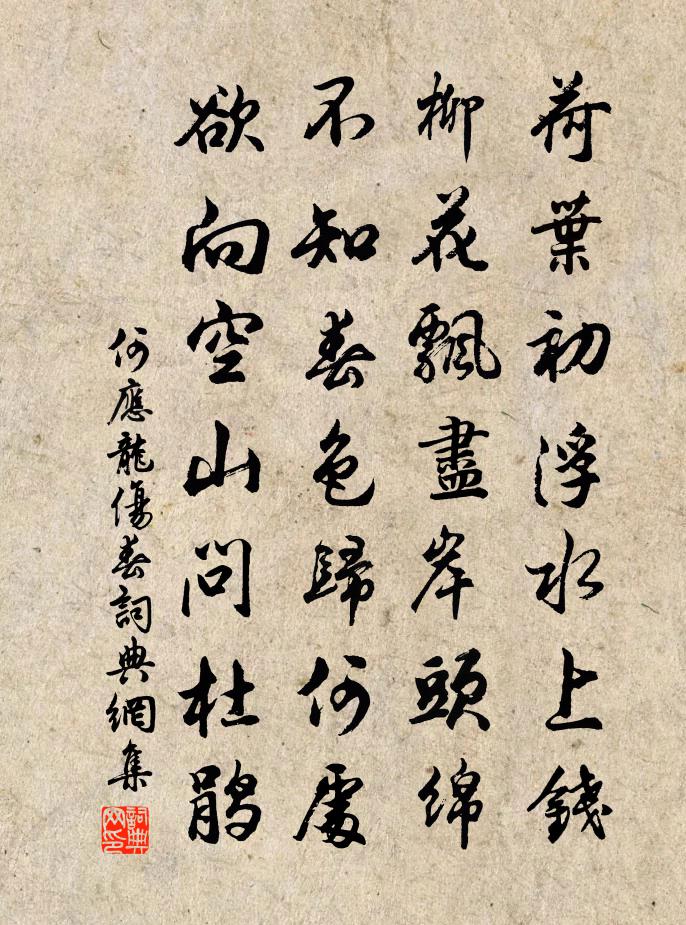 荷葉初浮水上錢
柳花飄盡岸頭綿
不知春色歸何處
欲向空山問杜鵑
何應龍傷春詞典網集
詞典网印